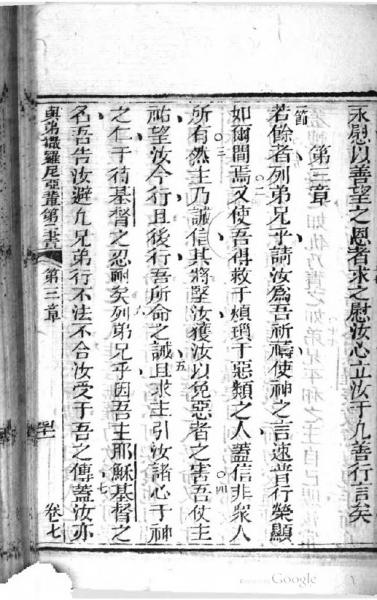 永慰以善望之恩者求之慰汝心立汝于凡善行言矣
第三章
一節
若餘者列弟兄乎請汝為吾祈禱使神之言速普行榮顯
二
如爾間焉又使吾得救于煩瑣于惡類之人蓋信非衆人
三
四
所有然主乃誠信其將堅汝獲汝以免惡者之害吾仗主
五
祐望汝今行且後行吾所命之誡且求主引汝諸心于神
六
之仁于待基督之忍耐矣列弟兄乎因吾主耶穌基督之
七
名吾告汝避凡兄弟行不法不合汝受于吾之傳蓋汝亦
與弟撒羅尼亞輩第二書
第三章
卷七
Google